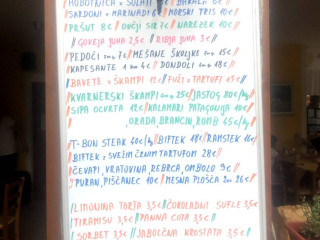 HOBOTNICA
SARDONI ✓ MARINADI 6€ // MORSKI TRIS 10€
PRŠUT 8€ // OVČJI SIR 7€ // NAREZEK 10€
// GOVEJA JUHA 2,5€ // RIBJA JUHA 3€ //
PEDOČI 7€ // MEŠANE ŠKOLJKE 15€
KAPESANTE 1 4€ // DONDOLI 18€
BAVETE ✓ ŠKAMPI 12€ // FUŽI ✓ TARTUFI 15€
KVARNERSKI ŠKAMPI 25€ // JASTOG 80€/kg
SIPA OCVRTA 12€ // KALAMARI PATAGONIJA 10€
, ORADA, BRANCIN, ROMB 45€/kg
T-BON STEAK 60€/kg // BIFTEK 18€ // RAMSTEK 16€
BIFTEK ✓ SVEŽIM ČRNIM TARTUFOM 28€ //
ČEVAPI, VRATOVINA, REBRCA, OMBOLO 9€ //
PURAN, PIŠČANEC 10€ // MESNA PLOŠČA 26€
LIMONINA TORTA 3,5€ // ČOKOLADNI SUFLE 3,5€
TIRAMISU 3,5€ // PANNA COTA 3,5€
SORBET 3,5€ // JABOLČNA KROSTATA 3,5€